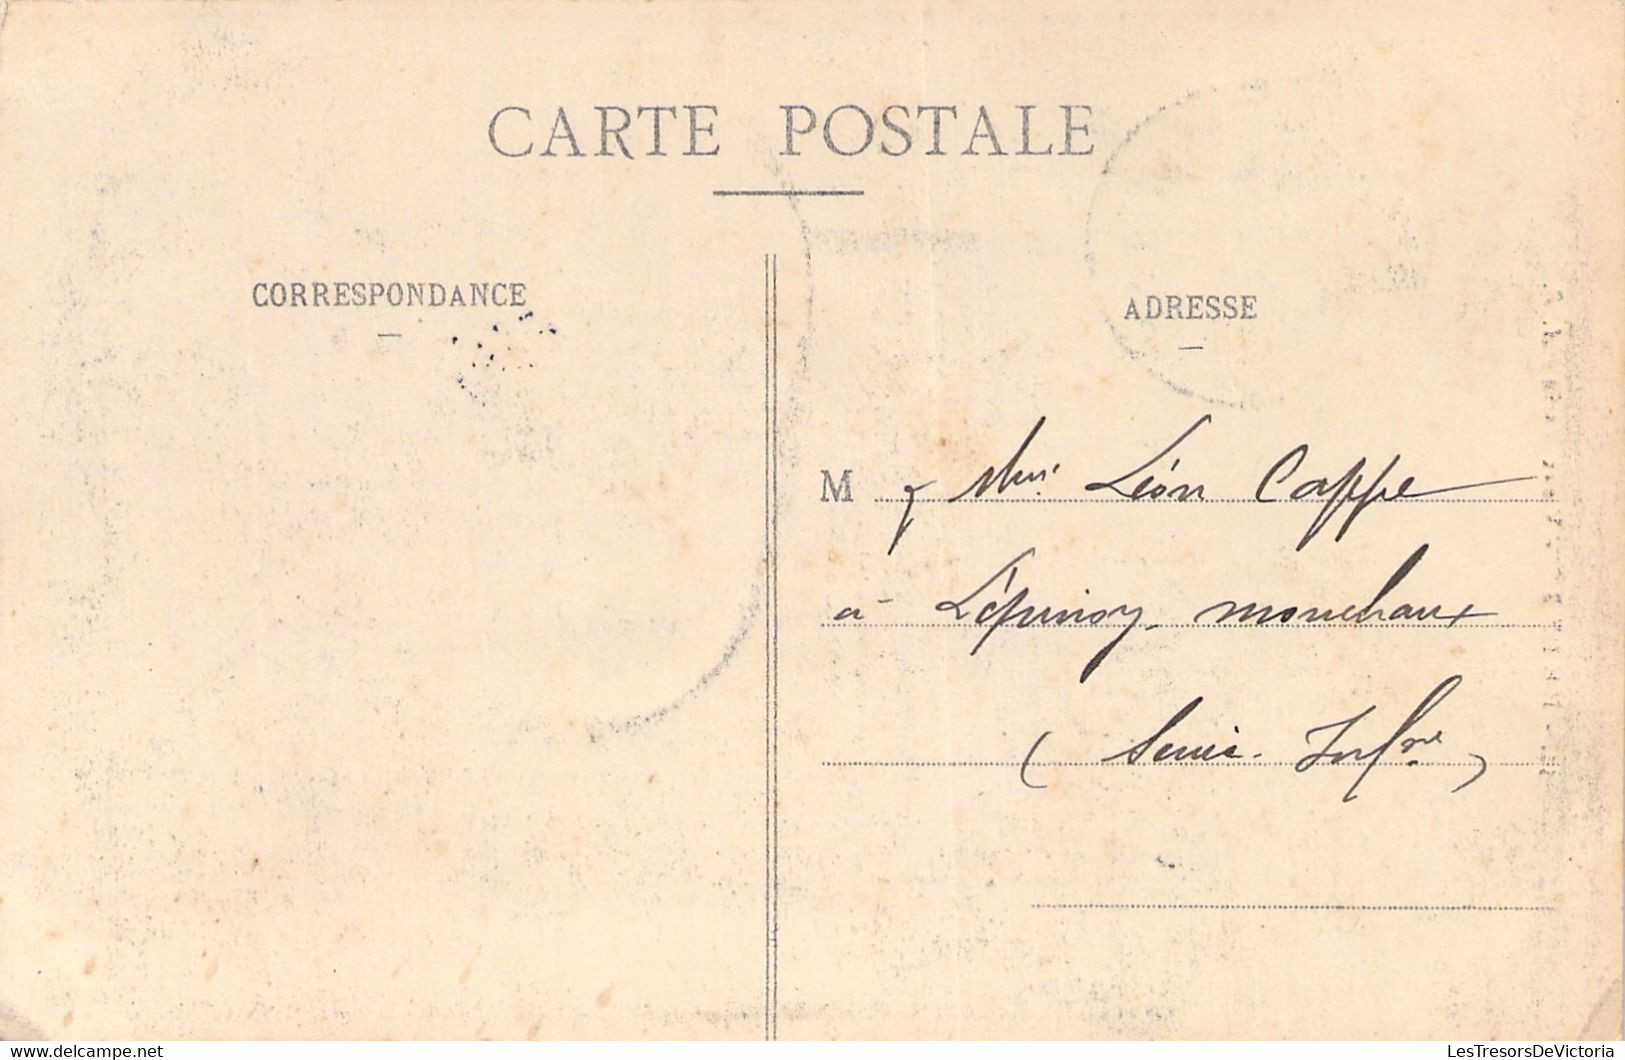 CARTE POSTALE
CORRESPONDANCE
ADRESSE
M Léon Cappe
à L'épinoy. mouchaux
( Seine. Infre )
www.delcampe.net LesTresorsDeVictoria